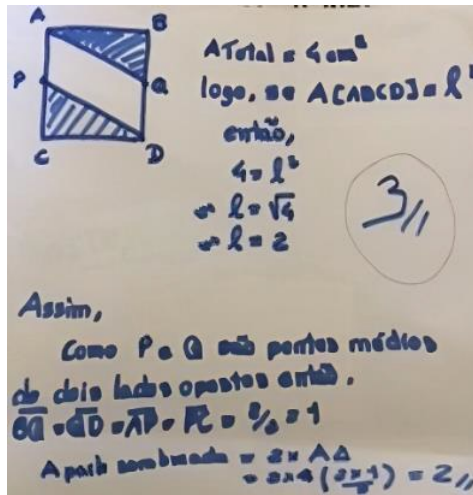 A B
P Q
C D
ATotal = 4 cm²
logo, se A[ABCD] = l²
então,
4 = l²
⇔ l = √4
⇔ l = 2
3//
Assim,
Como P e Q são pontos médios
de dois lados opostos então,
BQ = QD = AP = PC = 2/2 = 1
A parte sombreada = 2 × AΔ
= 2 × (2 × 1 / 2) = 2//